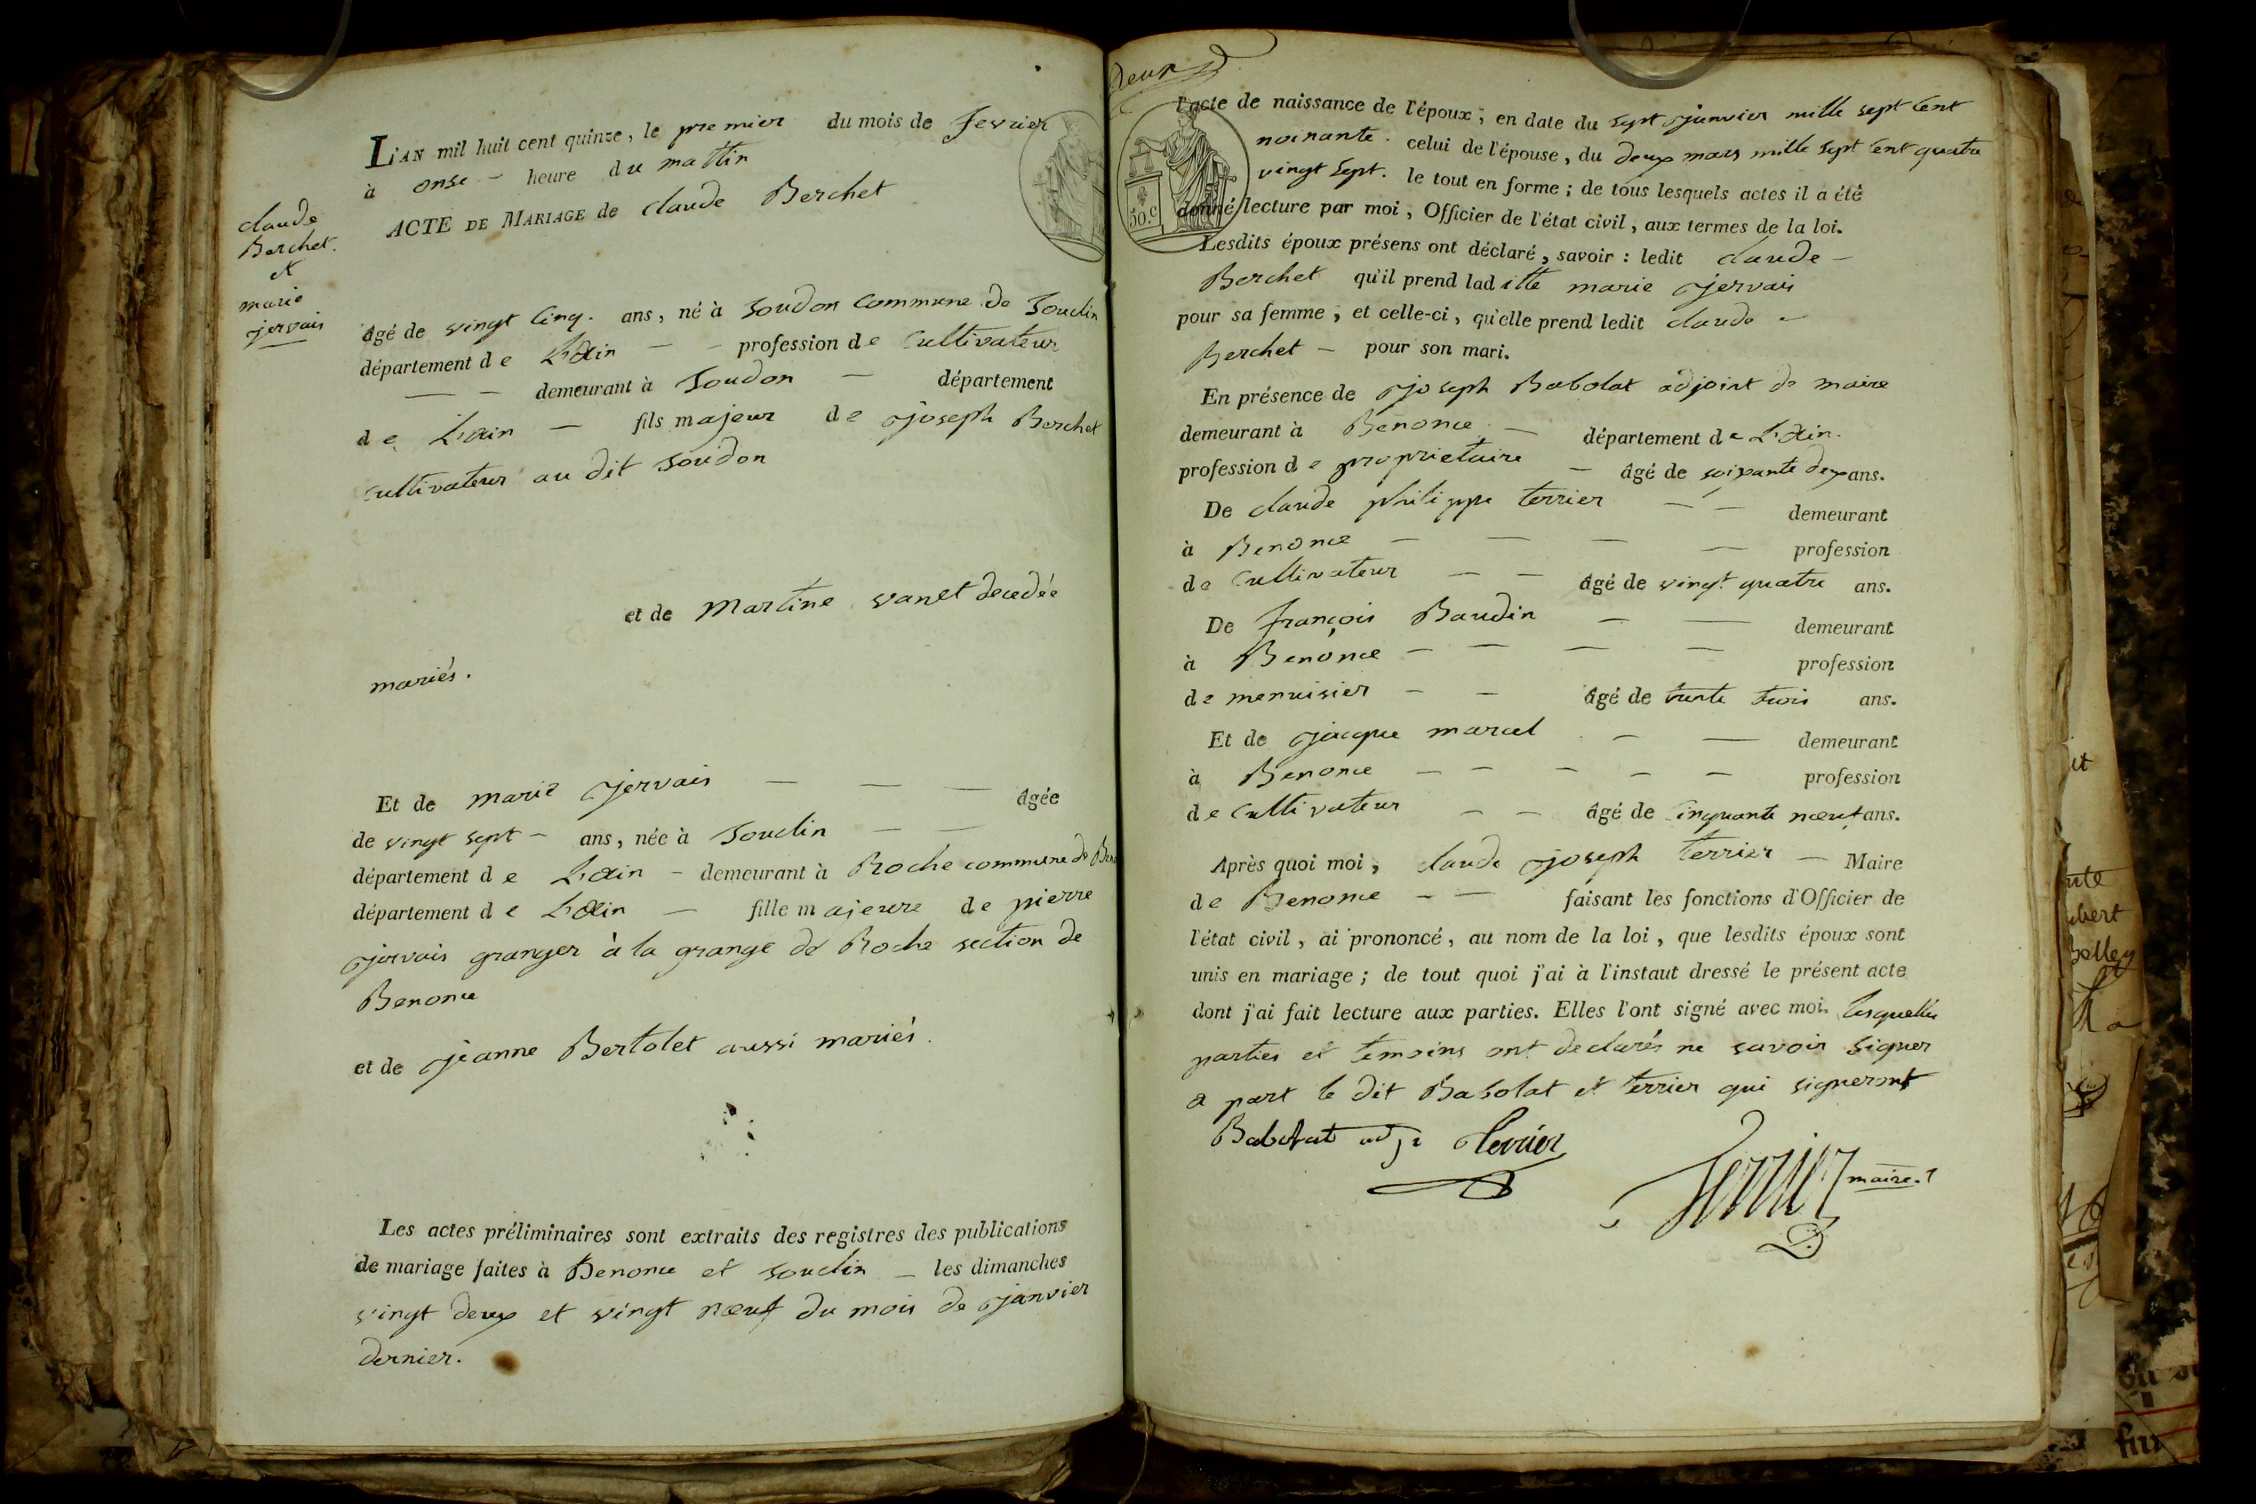 claude
Berchet.
et
marie
jervais
L'AN mil huit cent quinze, le premier du mois de fevrier
à onse - heure du mattin
ACTE DE MARIAGE de claude Berchet
âgé de vingt cinq. ans, né à Soudon commune de Souclin
département de L'ain — - profession de Cultivateur
— — demeurant à Soudon — département
de L'ain — fils majeur de joseph Berchet
cultivateur au dit Soudon
et de Martine vanet decedée
mariés.
Et de marie jervais — — — âgée
de vingt sept - ans, née à Souclin — —
département de L'ain - demeurant à Roche commune de
département de L'ain — fille majeure de pierre
jervais granger à la grange de Roche section de
Benonce
et de jeanne Bertolet aussi mariés.
Les actes préliminaires sont extraits des registres des publications
de mariage faites à Benonce et souclin — les dimanches
vingt deux et vingt nœuf du mois de janvier
dernier.
deux
30.c
l'acte de naissance de l'époux; en date du sept janvier mille sept cent
nonante. celui de l'épouse, du deux mars mille sept cent quatre
vingt sept. le tout en forme; de tous lesquels actes il a été
donné lecture par moi, Officier de l'état civil, aux termes de la loi.
Lesdits époux présens ont déclaré, savoir: ledit claude —
Berchet qu'il prend laditte marie jervais
pour sa femme; et celle-ci, qu'elle prend ledit claude -
Berchet — pour son mari.
En présence de joseph Babolat adjoint de maire
demeurant à Benonce — département de L'ain.
profession de proprietaire — âgé de soixante dex ans.
De claude philippe terrier — — demeurant
à Benonce — — — — profession
de Cultivateur — — âgé de vingt quatre ans.
De françois Baudin — — demeurant
à Benonce — — — — profession
de menuisier - - âgé de trente trois ans.
Et de jacque marcel - — demeurant
à Benonce — — — — — profession
de cultivateur — — âgé de cinquante nœuf ans.
Après quoi moi, claude joseph terrier — Maire
de Benonce — — faisant les fonctions d'Officier de
l'état civil, ai prononcé, au nom de la loi, que lesdits époux sont
unis en mariage; de tout quoi j'ai à l'instaut dressé le présent acte
dont j'ai fait lecture aux parties. Elles l'ont signé avec moi. lesquelles
parties et temoins ont declarés ne savoir signer
a part le dit Babolat et terrier qui signeront
Babolat adj. terrier
Terrier maire.